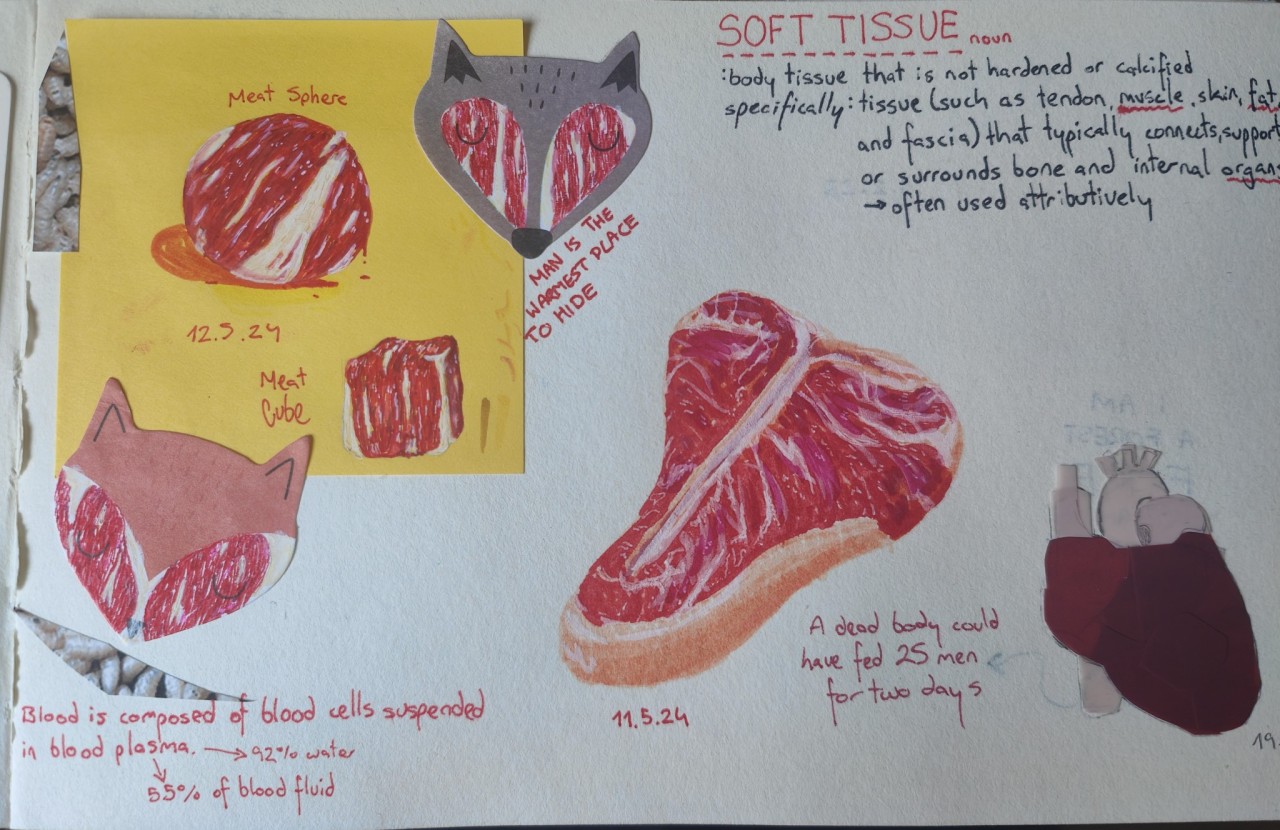 SOFT TISSUE noun
:body tissue that is not hardened or calcified
specifically: tissue (such as tendon, muscle, skin, fat,
and fascia) that typically connects, support
or surrounds bone and internal organs
→ often used attributively
Meat Sphere
12.5.24
Meat
Cube
MAN IS THE
WARMEST PLACE
TO HIDE
I AM
A FOREST
A dead body could
have fed 25 men
for two days
11.5.24
19.
Blood is composed of blood cells suspended
in blood plasma. → 92% water
55% of blood fluid